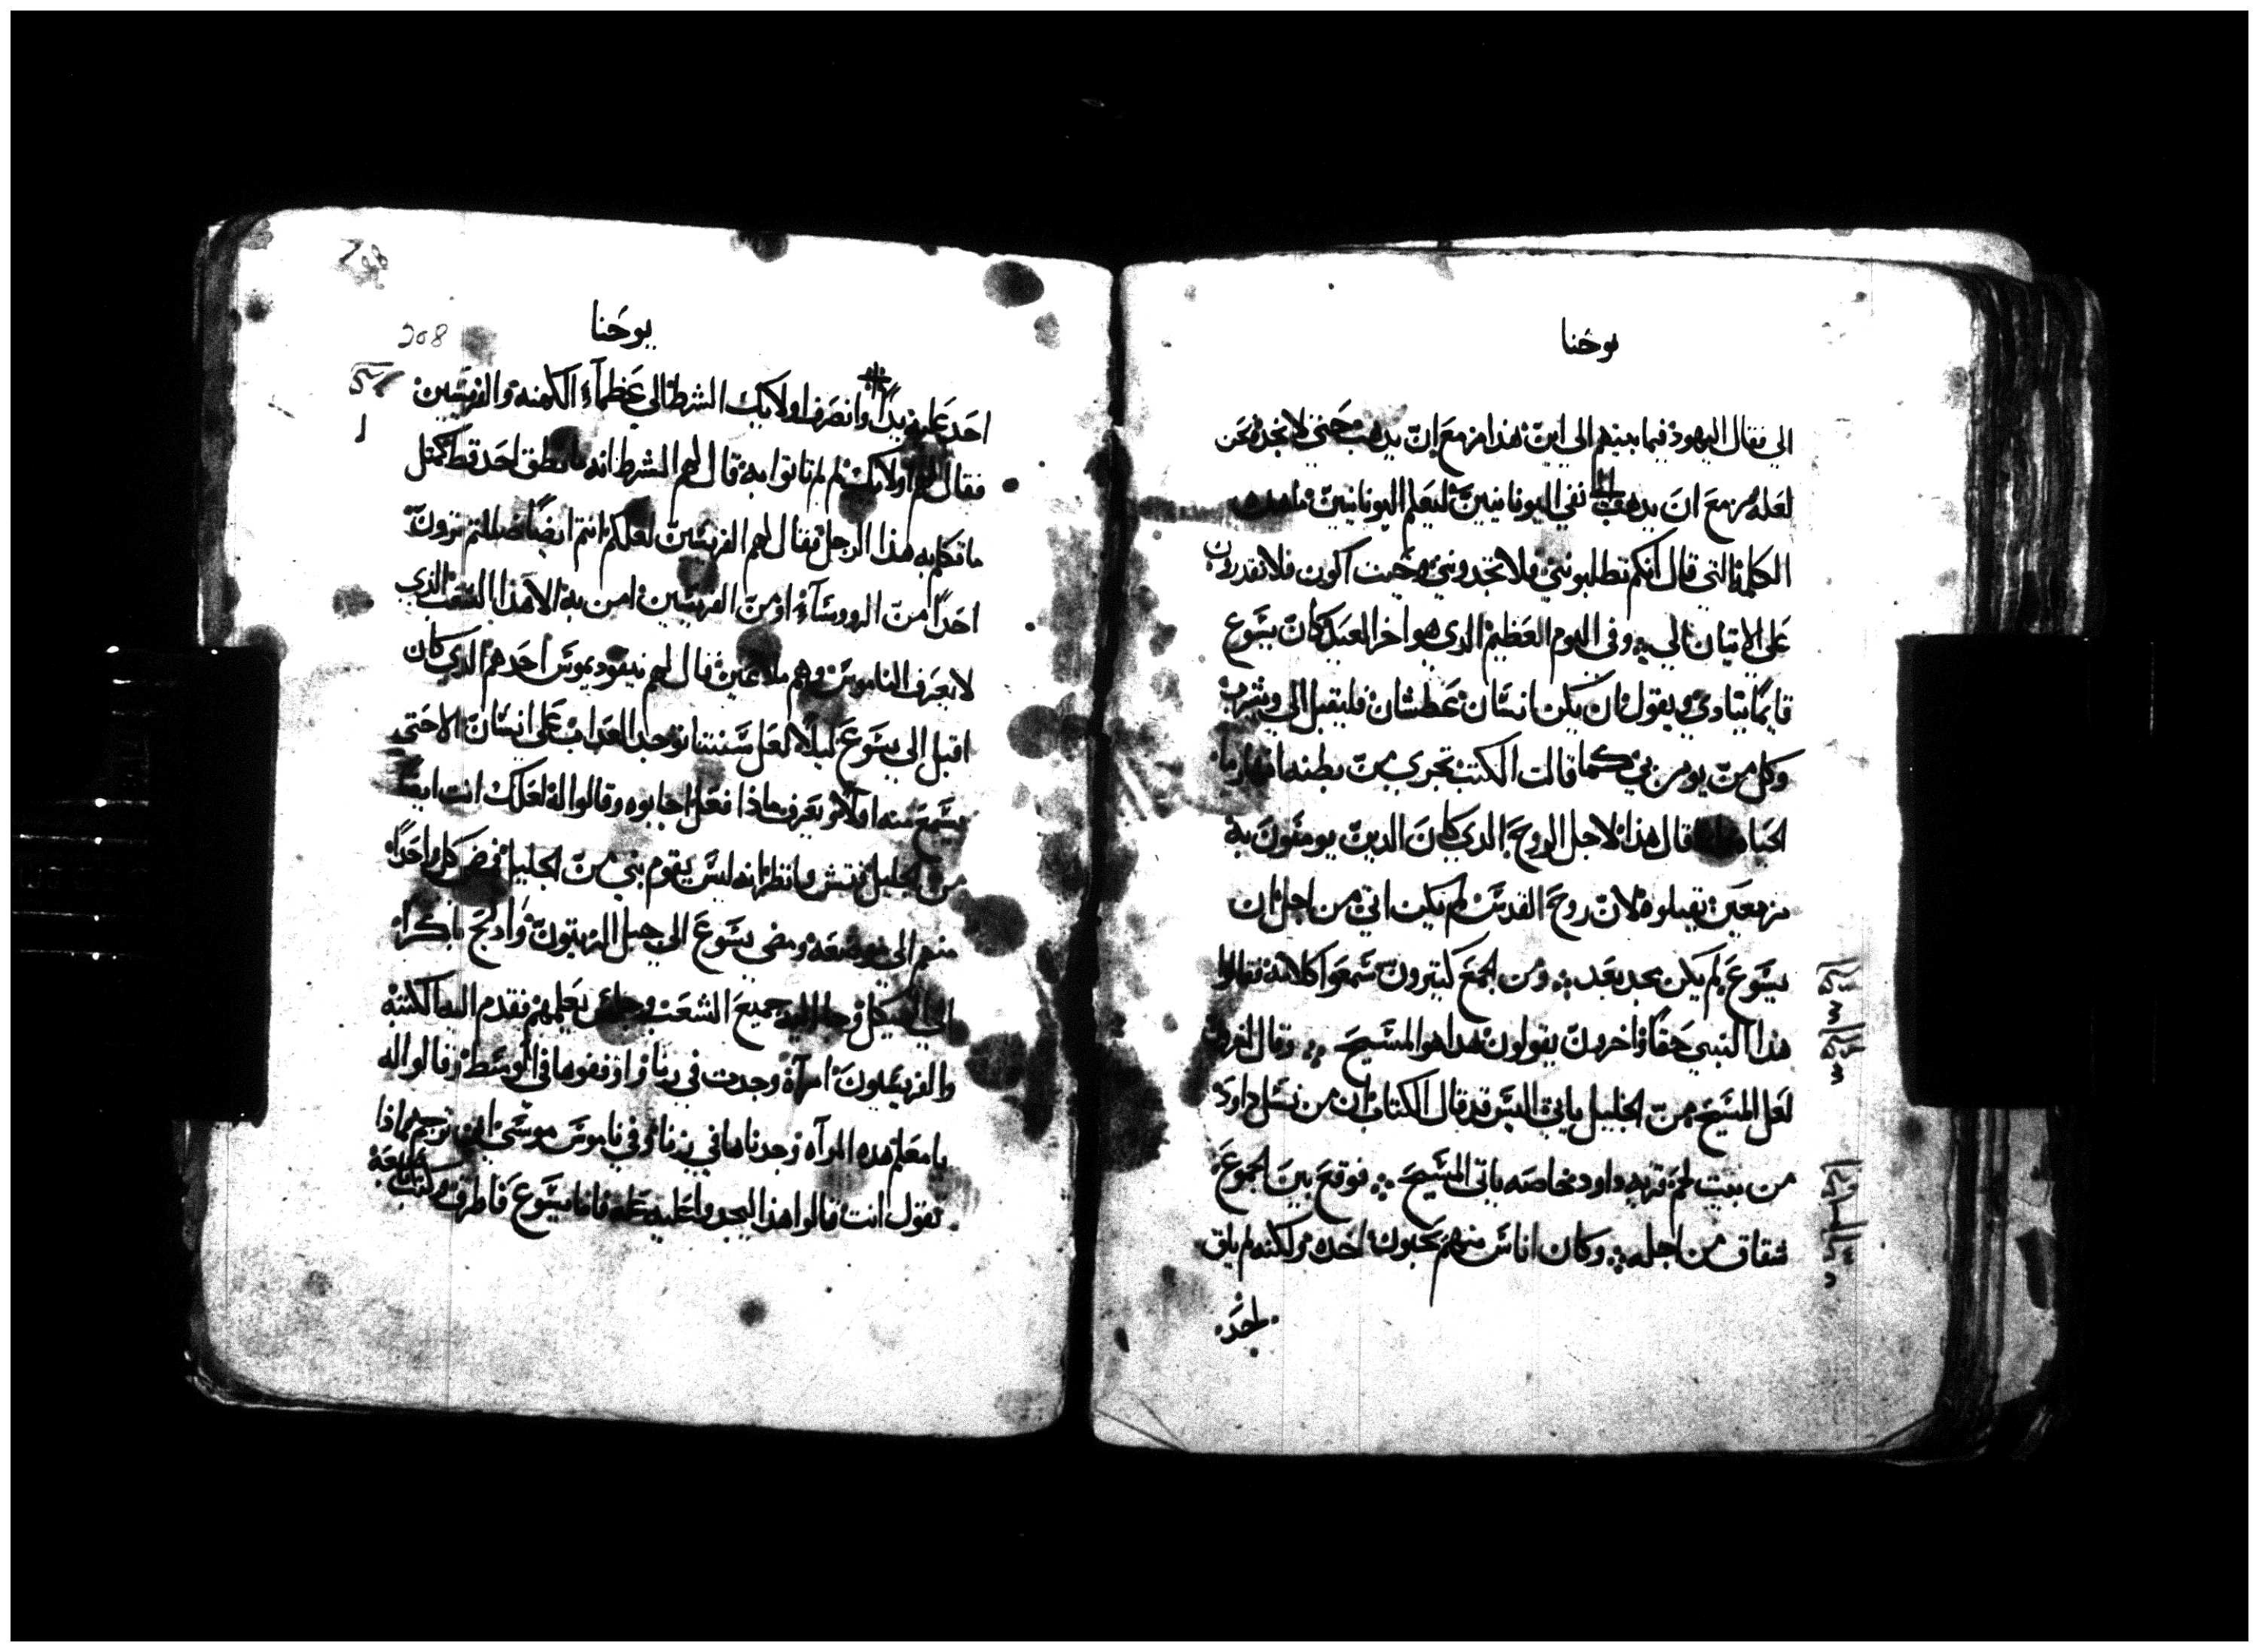 يوحنا
الي فقال اليهود فيما بينهم الي اين هذا مزمع ان يذهب حتي لا نجده نحن
لعله مزمع ان يذهب الي نفي اليونانيين ليعلم اليونانيين ما هذه
الكلمة التي قال انكم تطلبونني فلا تجدوني وحيت اكون فلا تقدرون
علي الاتيان الي وفي اليوم العظيم الدي هو اخر العيد كان يسوع
قايمًا ينادي ويقول ان يكن انسان عطشان فليقبل الي ويشرب
وكل من يومن بي كما قالت الكتب تجري من بطنه انهار ما
الحياه قال هذا لاجل الروح الدي كان الدين يومنون به
مزمعين يقبلوه لان روح القدس لم يكن اتي من اجل ان
يسوع لم يكن مجد بعد ومن الجمع كتيرون سمعوا كلامه فقالوا
هذا النبي حقًا واخرون يقولون هدا هو المسيح وقال اخرون
لعل المسيح من الجليل ياتي اليس قد قال الكتاب ان من نسل داود
من بيت لحم قريه داود خاصه ياتي المسيح فوقع بين الجموع
شقاق من اجله وكان اناس منهم يحبون اخده ولكنه لم يلق
احد
208
يوحنا
احد عليه يدًا وانصرف اولايك الشرط الي عظمآء الكهنه والفريسيين
فقال لهم اولايك لم لم تاتوا به قال لهم الشرط انه ما نطق احد قط كمتل
ما تكلم به هذا الرجل فقال لهم الفريسيين لعلكم انتم ايضًا ضللتم ترون
احدًا من الروسآء او من الفريسيين امن به الا هذا الشعب الذي
لا يعرف الناموس وهم ملاعين قال لهم نيقوديموس احدهم الدي كان
اقبل الي يسوع ليلًا لعل سنتنا توجب العداب علي انسان الا حتي
يسمع منه اولًا او تعرف ماذا فعل اجابوه وقالوا له لعلك انت ايضًا
من الجليل فتش وانظر انه ليس يقوم نبي من الجليل فمضي كل واحدًا
منهم الي موضعه ومضي يسوع الي جبل الزيتون وادلج باكرًا
الي الهيكل وجا اليه جميع الشعب وجلس يعلمهم فقدم اليه الكتبه
والفريسيون امرآة وجدت في زنا واوقفوها في الوسط وقالوا له
يا معلم هذه المرآه وجدناها في زنا وفي ناموس موسي ان ترجم فماذا
تقول انت قالوا هذا ليجدوا عليه عله فاما يسوع فاطرق وكتب